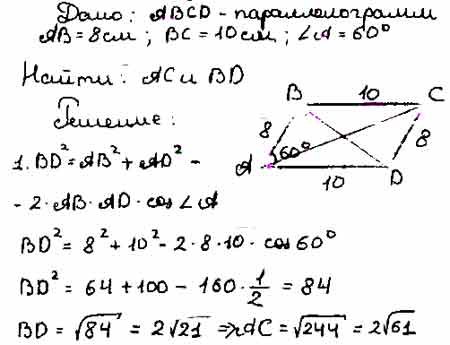 Дано: ABCD - параллелограмм
AB = 8см; BC = 10см; ∠A = 60°
Найти: AC и BD
Решение:
B 10 C
8 60° 8
A 10 D
1. BD² = AB² + AD² -
- 2·AB·AD·cos∠A
BD² = 8² + 10² - 2·8·10·cos60°
BD² = 64 + 100 - 160·1/2 = 84
BD = √84 = 2√21 ⇒ AC = √244 = 2√61